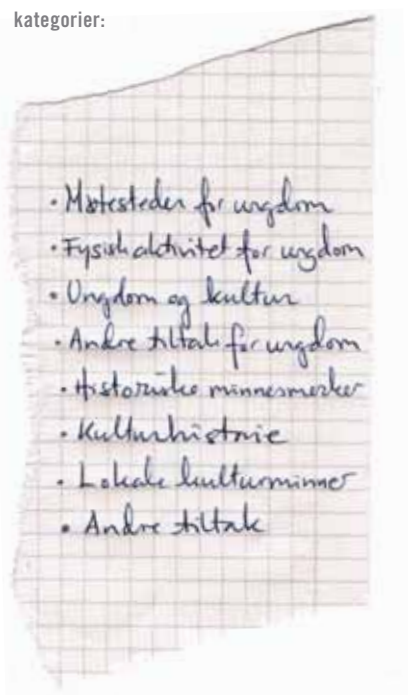 kategorier:
• Møtesteder for ungdom
• Fysisk aktivitet for ungdom
• Ungdom og kultur
• Andre tiltak for ungdom
• Historiske minnesmerker
• Kulturhistorie
• Lokale kulturminner
• Andre tiltak